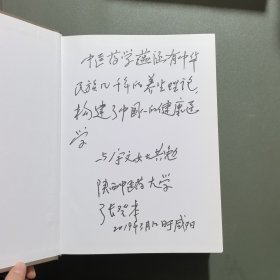 中医药学蕴涵有中华
民族几千年的养生理论,
构建了中国人的健康医
学
与宇文女士共勉
陕西中医药大学
张登本
2019年3月12时咸阳